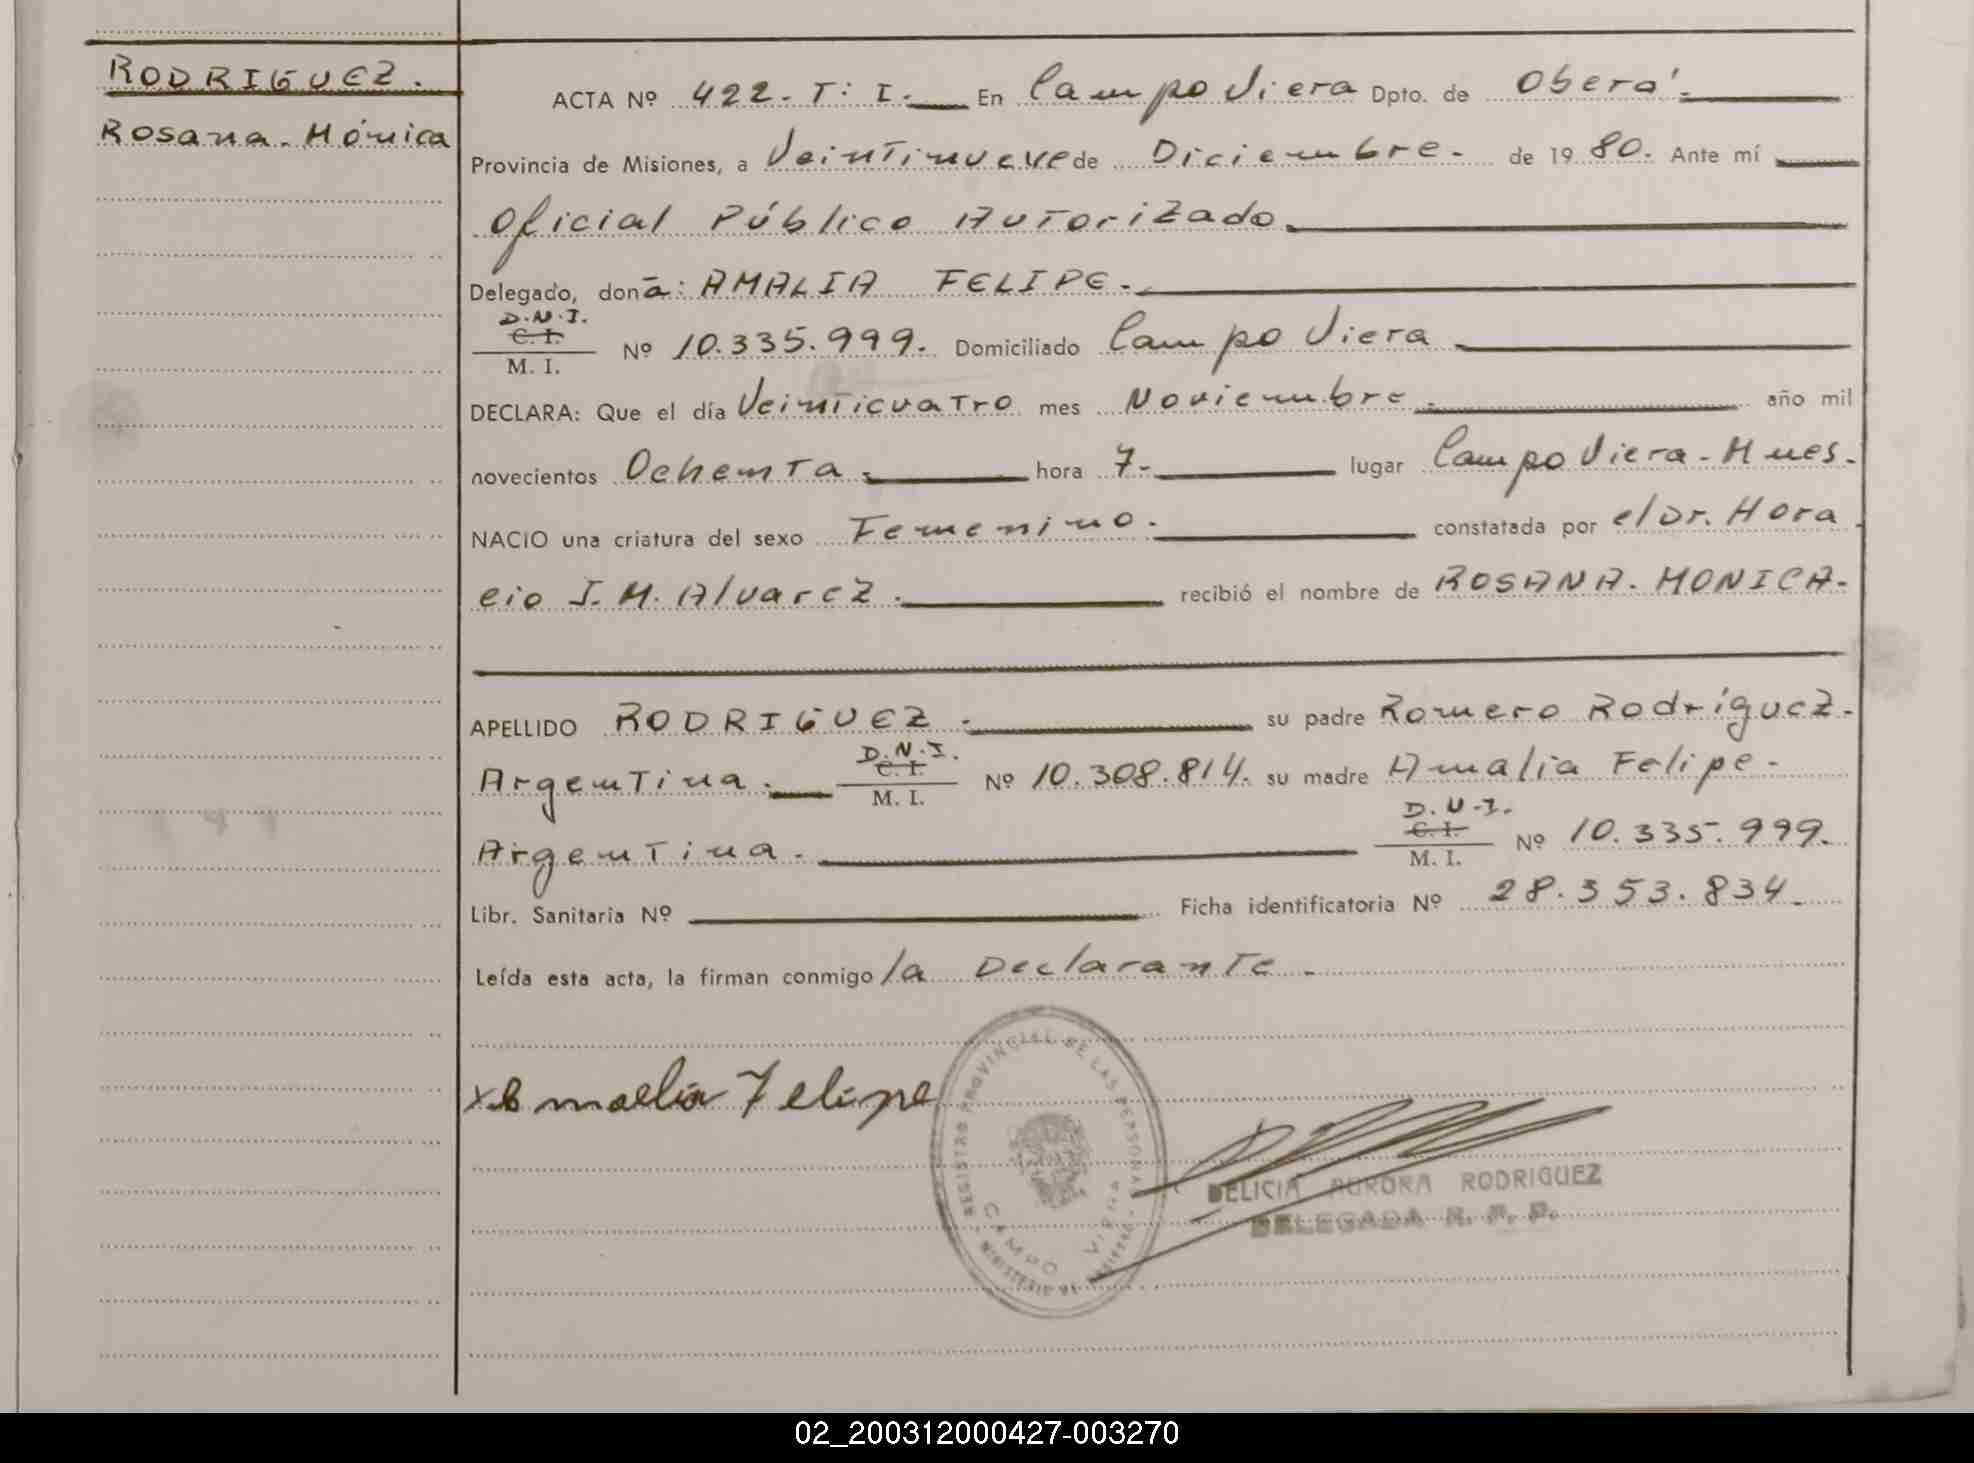 RODRIGUEZ.
Rosana. Mónica
ACTA Nº 422. T: I. En Campo Viera Dpto. de Oberá.
Provincia de Misiones, a Veintinueve de Diciembre. de 19 80. Ante mí
Oficial Público Autorizado
Delegado, don a: AMALIA FELIPE.
D.N.I.
C. I.
M. I.
Nº 10.335.999. Domiciliado Campo Viera
DECLARA: Que el día Veinticuatro mes Noviembre. año mil
novecientos Ochenta. hora 7. lugar Campo Viera. Mnes.
NACIO una criatura del sexo Femenino. constatada por el Dr. Hora
cio J. M. Alvarez. recibió el nombre de ROSANA. MONICA.
APELLIDO RODRIGUEZ. su padre Romero Rodríguez.
Argentina. D.N.I. C. I. M. I. Nº 10.308.814. su madre Amalia Felipe.
Argentina. D.N.I. C. I. M. I. Nº 10.335.999.
Libr. Sanitaria Nº Ficha identificatoria Nº 28.353.834.
Leída esta acta, la firman conmigo la Declarante.
x Amalia Felipe
REGISTRO PROVINCIAL DE LAS PERSONAS
CAMPO VIERA
DELICIA AURORA RODRIGUEZ
DELEGADA R. P. P.
02_200312000427-003270